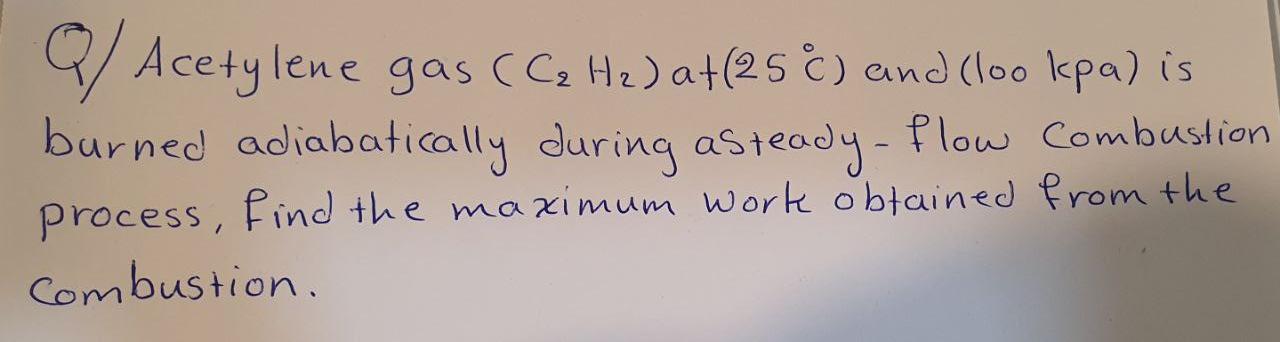 Q/ Acetylene gas (C₂ H₂) at (25 °C) and (100 kpa) is
burned adiabatically during a steady - flow Combustion
process, find the maximum work obtained from the
Combustion.